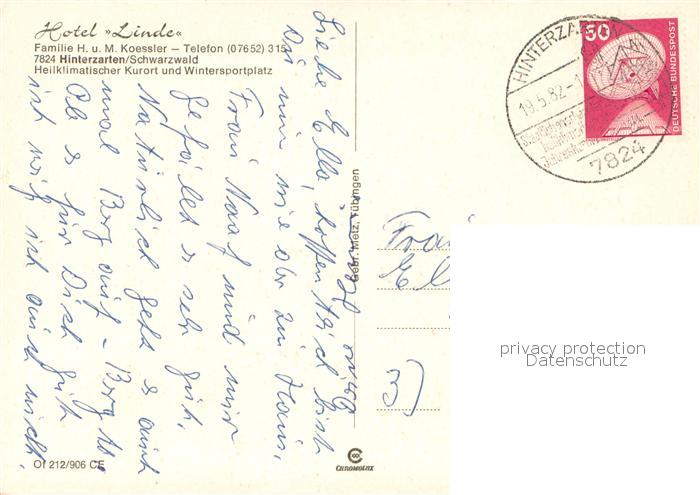 Hotel »Linde«
Familie H. u. M. Koessler — Telefon (07652) 315
7824 Hinterzarten/Schwarzwald
Heilklimatischer Kurort und Wintersportplatz
Liebe Ella, hoffentlich bist
Du nun wieder zu Haus,
Frau Naaf und mir
gefällt es sehr gut,
Natürlich geht es auch
mal Berg auf - Berg ab
Ob es für Dich gut
ist weiß ich auch nicht.
Gebr. Metz, Tübingen
HINTERZARTEN
19.5.82
7824
50
DEUTSCHE BUNDESPOST
Frau
privacy protection
Datenschutz
CHROMOLUX
Of 212/906 CE